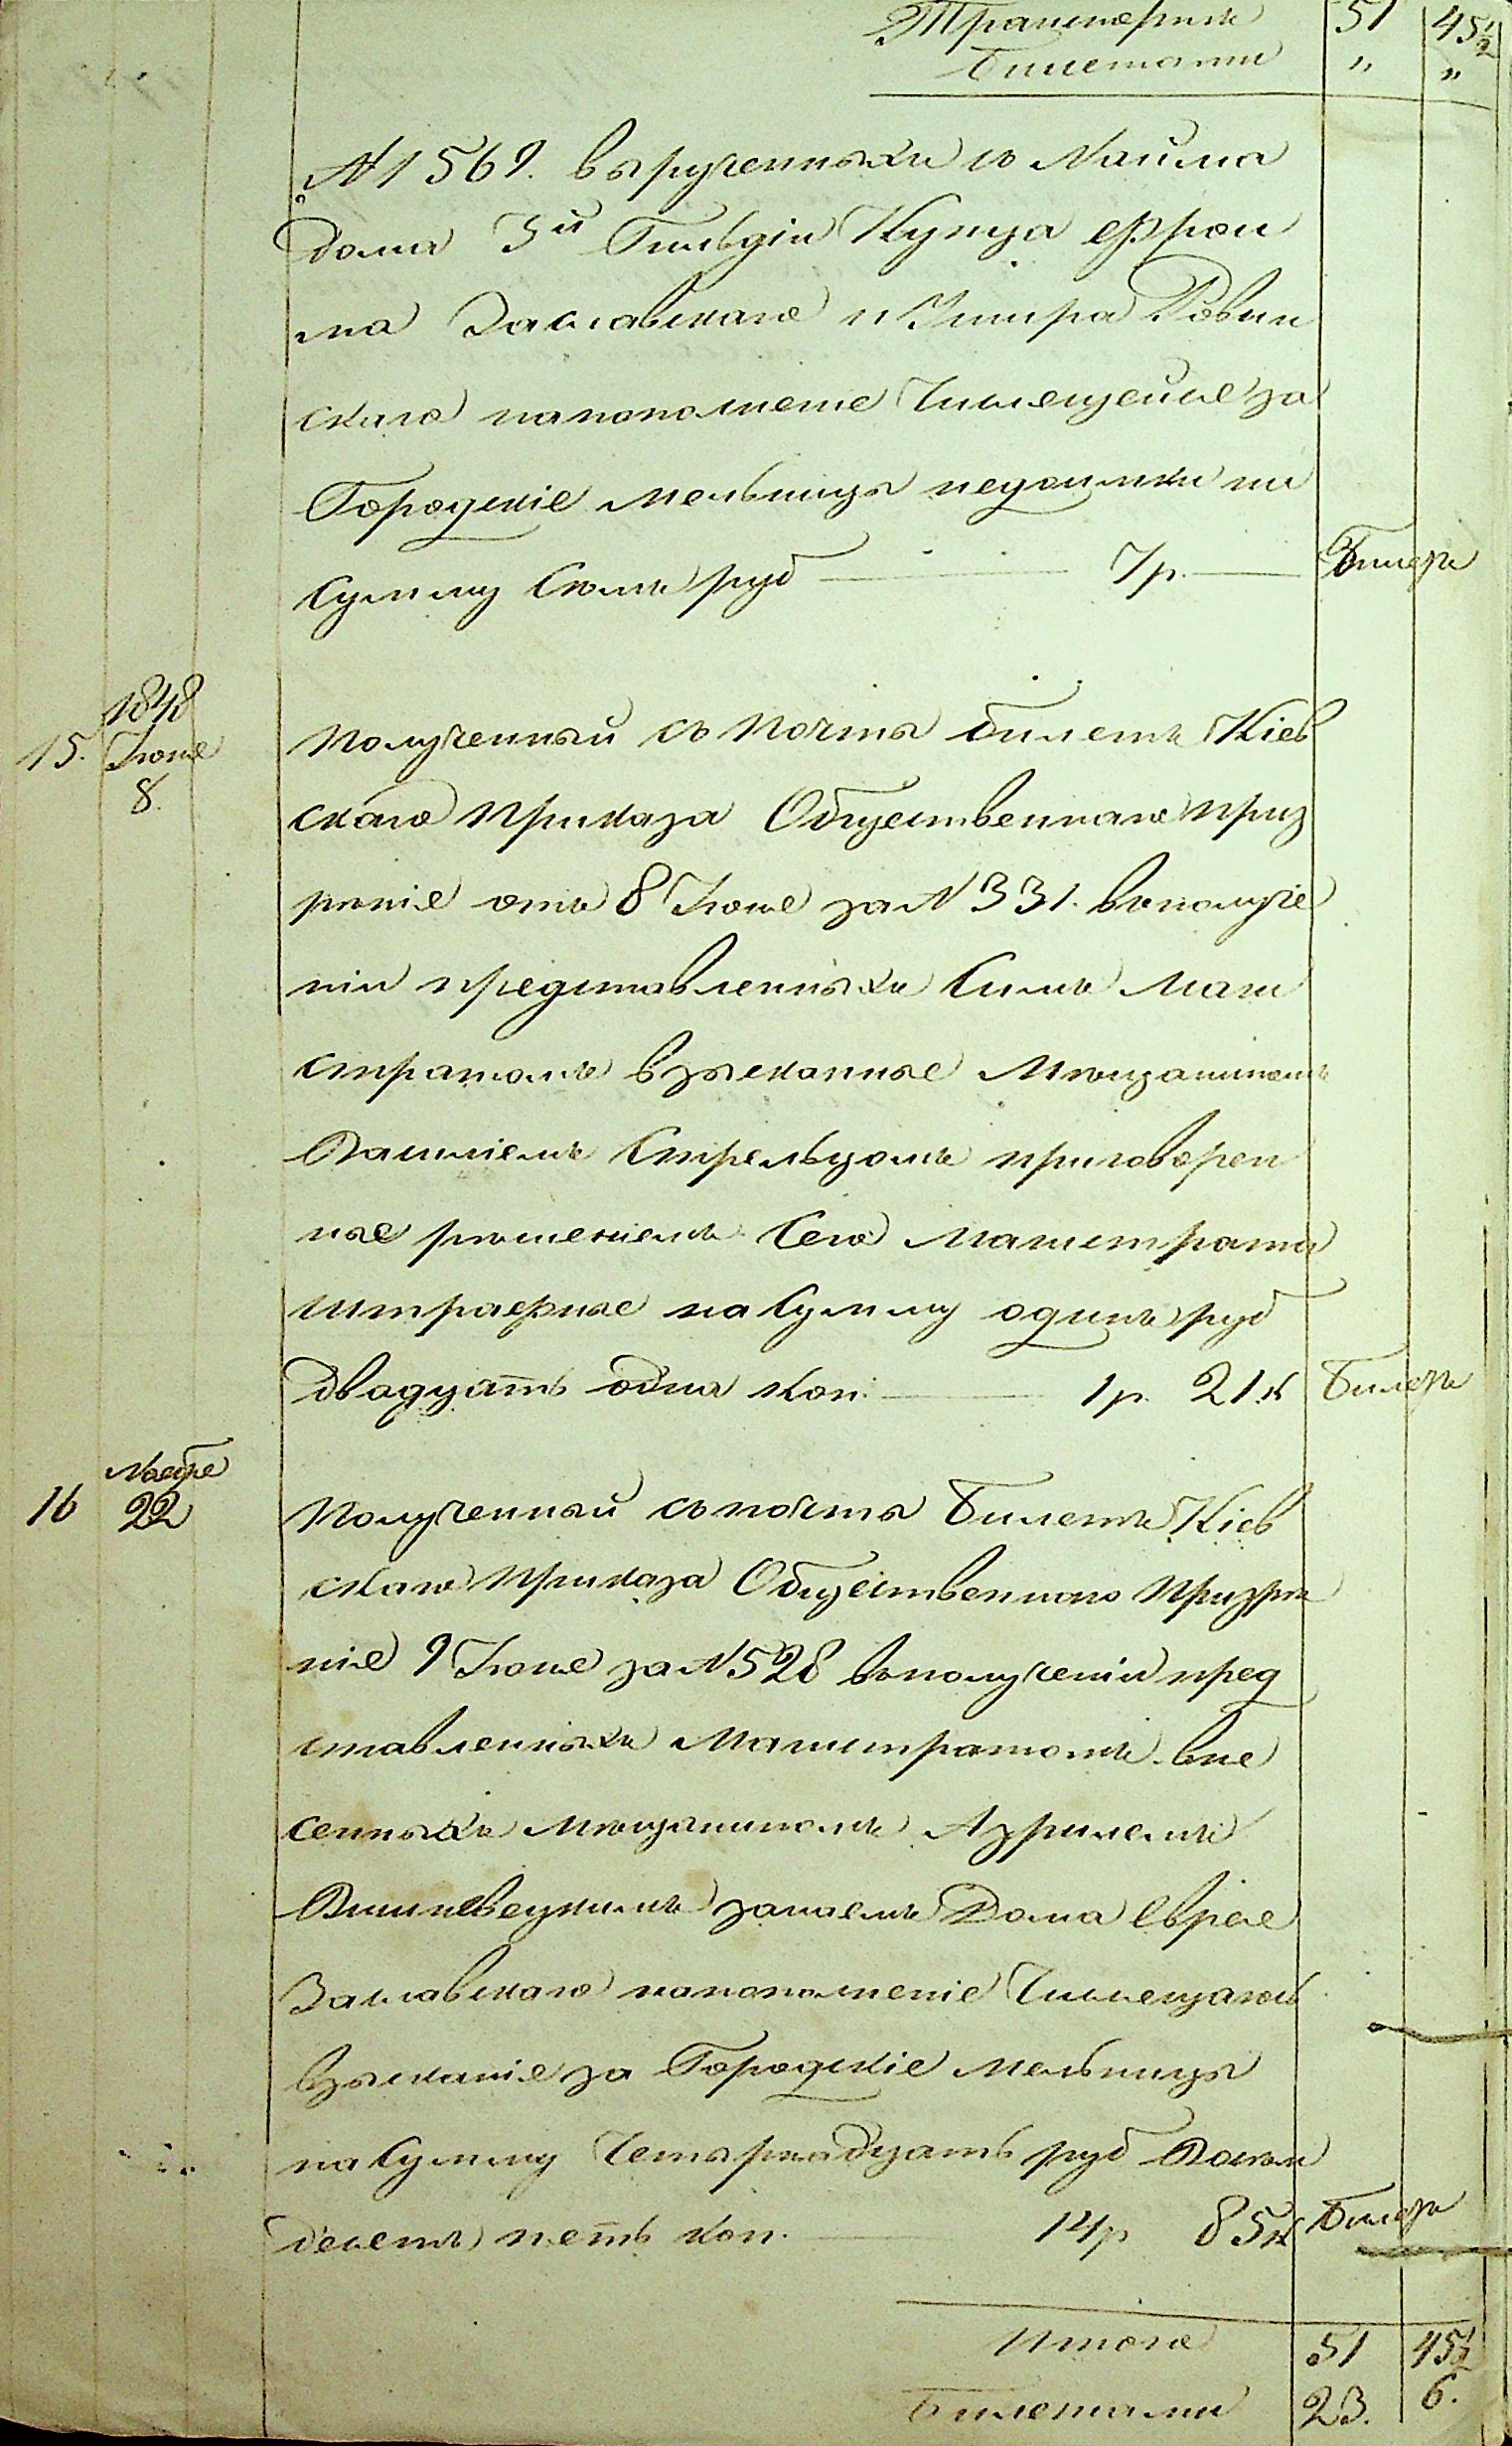 Транспортъ 51 45 1/2
Билетами " "
№ 1569. вырученныхъ съ Найма
дома 3й Гильдіи Купца Фрои
ма Заславскаго и Умира Ровин
скаго напополненіе Числящейся за
Городскіе мельницы недоимки на
Сумму Семь руб 7 р. Билетъ
1848
15. Іюня 8. Полученный съ почты билетъ Кіев
скаго Приказа Общественнаго приз
рѣнія отъ 8 Іюня за № 331. въ получе
ніи представленныхъ Симъ Маги
стратомъ взысканные Мѣщаниномъ
Василіемъ Стрельцомъ приговорен
ные рѣшеніемъ Сего Магистрата
штрафные на Сумму одинъ руб
двадцать одна коп. 1 р. 21 к Билетъ
16 Ноября 22 Полученный съ почты Билетъ Кіев
скаго Приказа Общественнаго Призрѣ
нія 9 Іюня за № 528 въ полученіи пред
ставленныхъ Магистратомъ вне
сенныхъ Мѣщаниномъ Азрилемъ
Вишневецкимъ занаемъ Дома Еврея
Заславскаго напополненіе Числящагось
взысканія за Городскіе мельницы
на Сумму Четырнадцать руб Восем
десятъ пять коп. 14 р 85 к Билетъ
Итого 51 45 1/2
Билетами 23. 6.